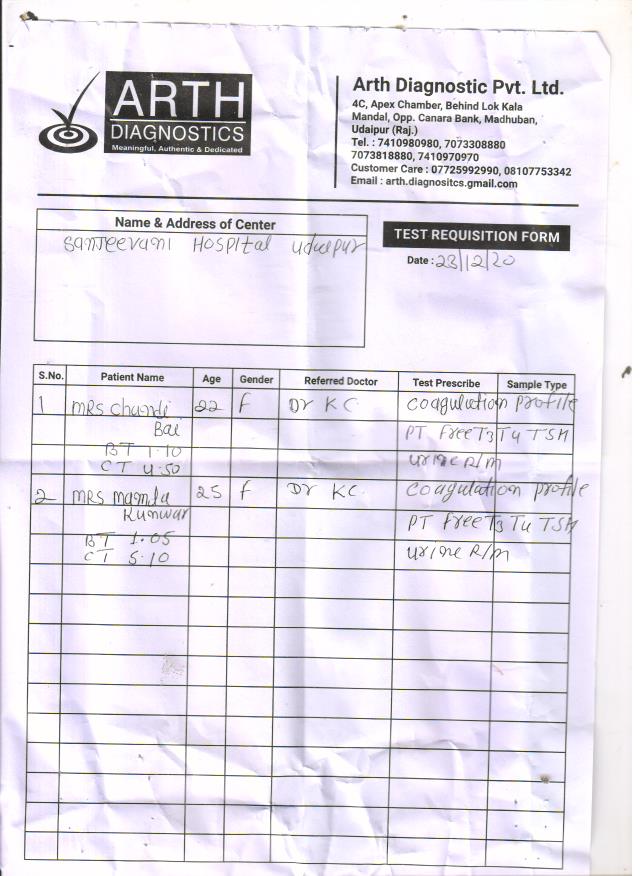 ARTH
DIAGNOSTICS
Meaningful, Authentic & Dedicated
Arth Diagnostic Pvt. Ltd.
4C, Apex Chamber, Behind Lok Kala
Mandal, Opp. Canara Bank, Madhuban,
Udaipur (Raj.)
Tel. : 7410980980, 7073308880
7073818880, 7410970970
Customer Care : 07725992990, 08107753342
Email : arth.diagnositcs.gmail.com
Name & Address of Center
Sanjeevani Hospital Udaipur
TEST REQUISITION FORM
Date : 23/12/20
S.No. Patient Name Age Gender Referred Doctor Test Prescribe Sample Type
1 MRS Chundi 22 F Dr KC Coagulation profile
Bai PT Free T3 T4 TSH
BT 1.10
CT 4.50 urine R/m
2 MRS Mamta 25 F Dr KC Coagulation profile
Kunwar PT Free T3 T4 TSH
BT 1.05
CT 5.10 urine R/m